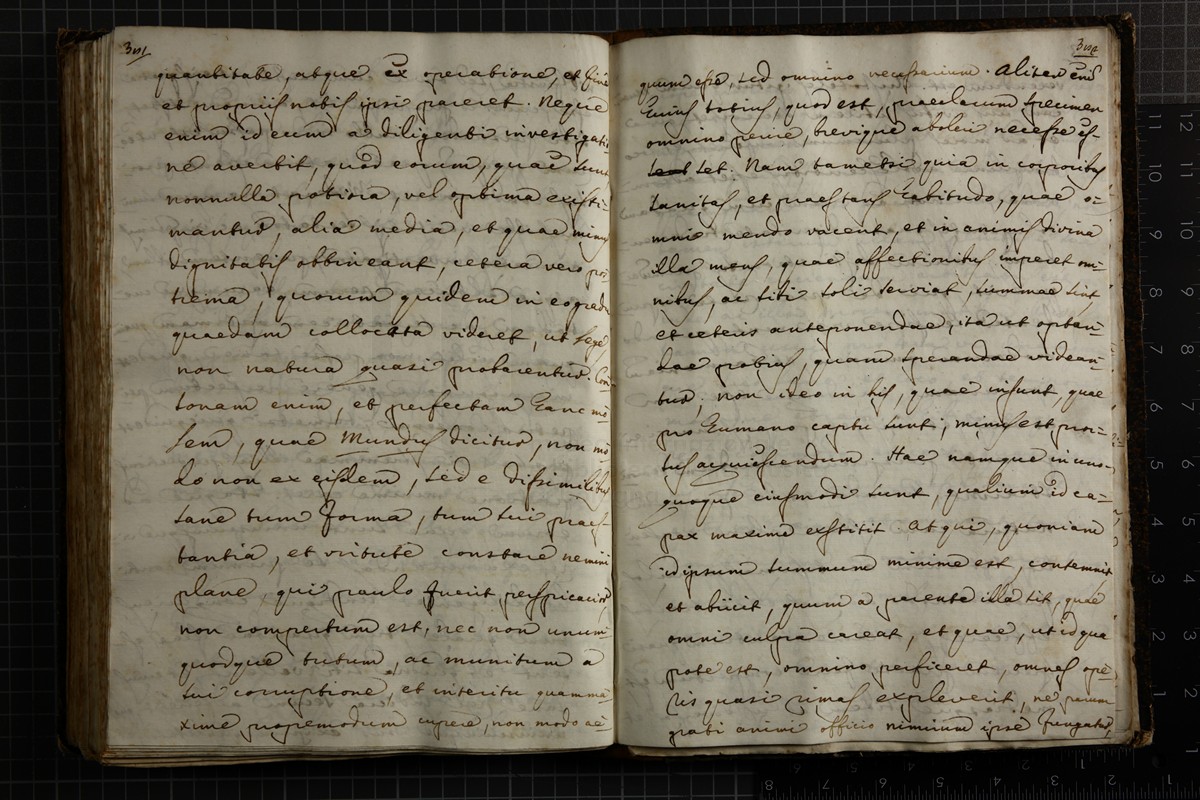 391
quantitate, atque ex operatione, et fine
et propriis nobis ipsi pareret. Neque
enim id eum a diligenti investigati-
ne avertit, quod eorum, quae sunt,
nonnulla potiora, vel optima existi-
mantur, alia media, et quae minus
dignitatis obtineant, cetera vero pos-
trema, quorum quidem in eo gradu
quaedam collocata videret, ut lege
non natura quasi probarentur. Con-
sonam enim, et perfectam hanc mo-
lem, quae Mundus dicitur, non mo-
do non ex eisdem, sed e dissimilibus
sane tum forma, tum sui praes-
tantia, et virtute constare nemini
plane, qui paulo fuerit perspicacior,
non compertum est, nec non unum
quodque tutum, ac munitum a
sui corruptione, et interitu quam ma-
xime propemodum cupere, non modo ae-
392
quum esse, sed omnino necessarium. Aliter eni
huius totius, quod est, praeclarum specimen
omnino perire, brevique aboleri necesse es-
set. Nam tametsi quia in corporibus
sanitas, et praestans habitudo, quae o-
mni mendo vacent, et in animis divina
illa mens, quae affectionibus imperet om-
nibus, ac sibi soli serviat, summae sint
et ceteris anteponendae, ita ut optan-
dae potius, quam sperandae videan-
tur; non ideo in his, quae insunt, quae
pro humano captu sunt, minus est pror-
sus acquiescendum. Hae namque in uno-
quoque eiusmodi sunt, qualium id ca-
pax maxime exstitit. At qui, quoniam
id ipsum summum minime est, contemnit
et abiicit, quum a parente illa sit, quae
omni culpa careat, et quae, ut id qua
pote est, omnino perficeret, omnes ope-
ris quasi rimas expleverit, ne parum
grati animi officio nimium ipse fungatur,